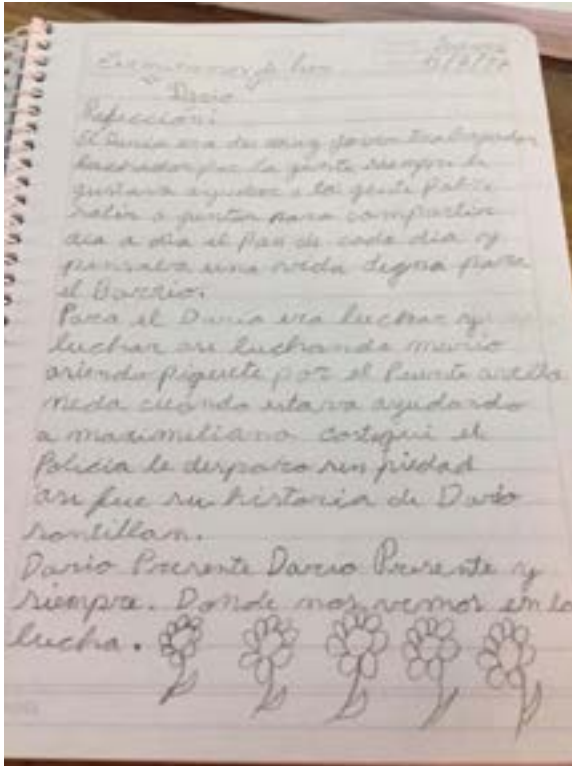 Dario
Refeccion:
El Dario era de muy joven trabajador
luchador por la gente siempre le
gustava ayudar a la gente Pobre
salir a juntar para compartir
dia a dia el Pan de cada dia y
pensava una vida digna para
el Barrio.
Para el Dario era luchar y
luchar asi luchando murio
asiendo piquete por el Puente avella
neda cuando estava ayudando
a maximiliano costequi el
Policia le disparo sin piedad
asi fue su historia de Dario
santillan.
Dario Presente Dario Presente y
siempre. Donde nos vemos en la
lucha.